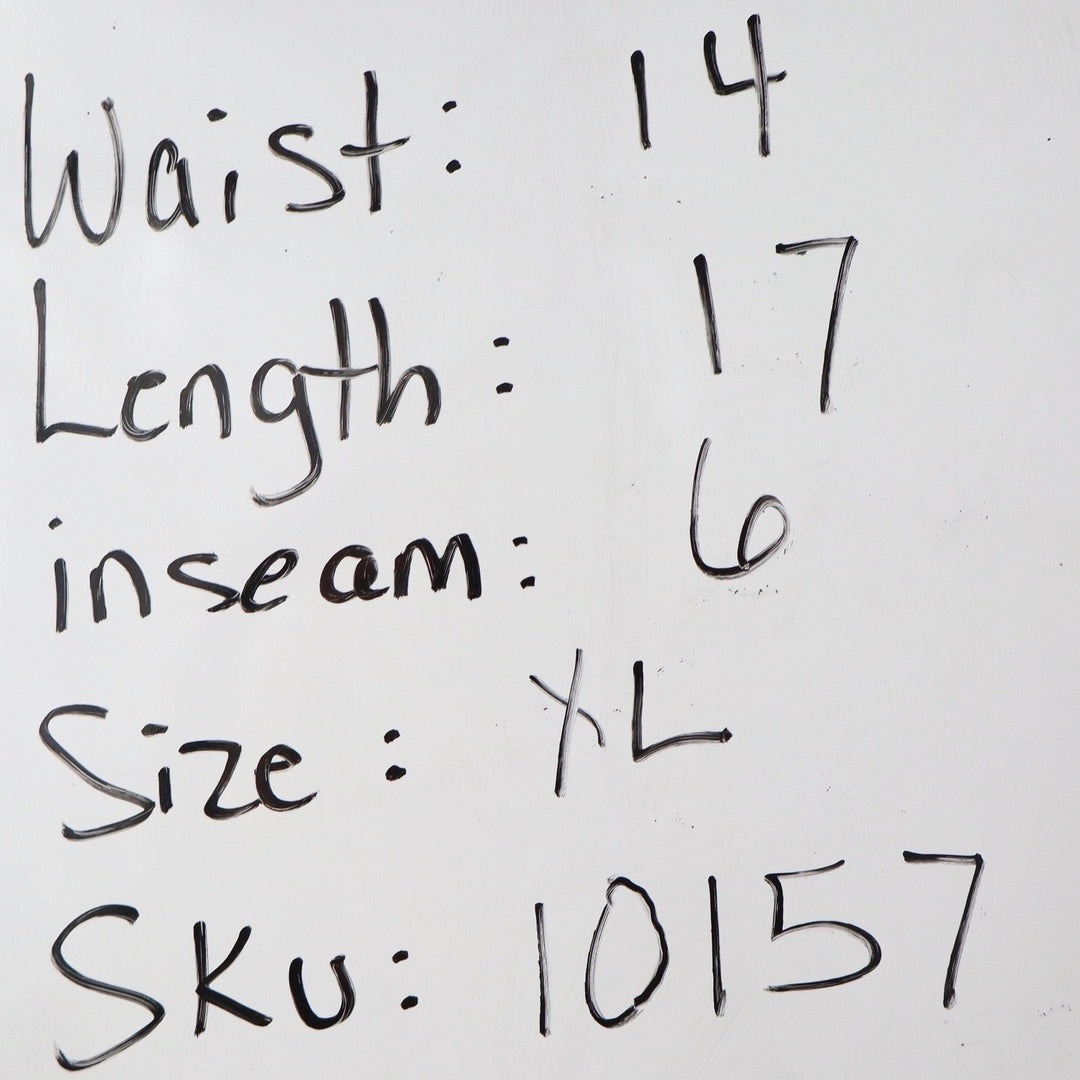 Waist: 14
Length: 17
inseam: 6
Size: XL
SKU: 10157